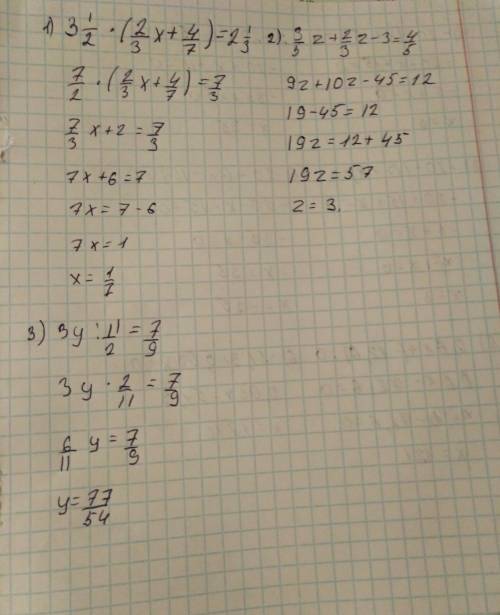 1) 3 1/2 · (2/3 x + 4/7) = 2 1/3
7/2 · (2/3 x + 4/7) = 7/3
7/3 x + 2 = 7/3
7x + 6 = 7
7x = 7 - 6
7x = 1
x = 1/7
2) 3/5 z + 2/3 z - 3 = 4/5
9z + 10z - 45 = 12
19 - 45 = 12
19z = 12 + 45
19z = 57
z = 3.
3) 3y : 11/2 = 7/9
3y · 2/11 = 7/9
6/11 y = 7/9
y = 77/54